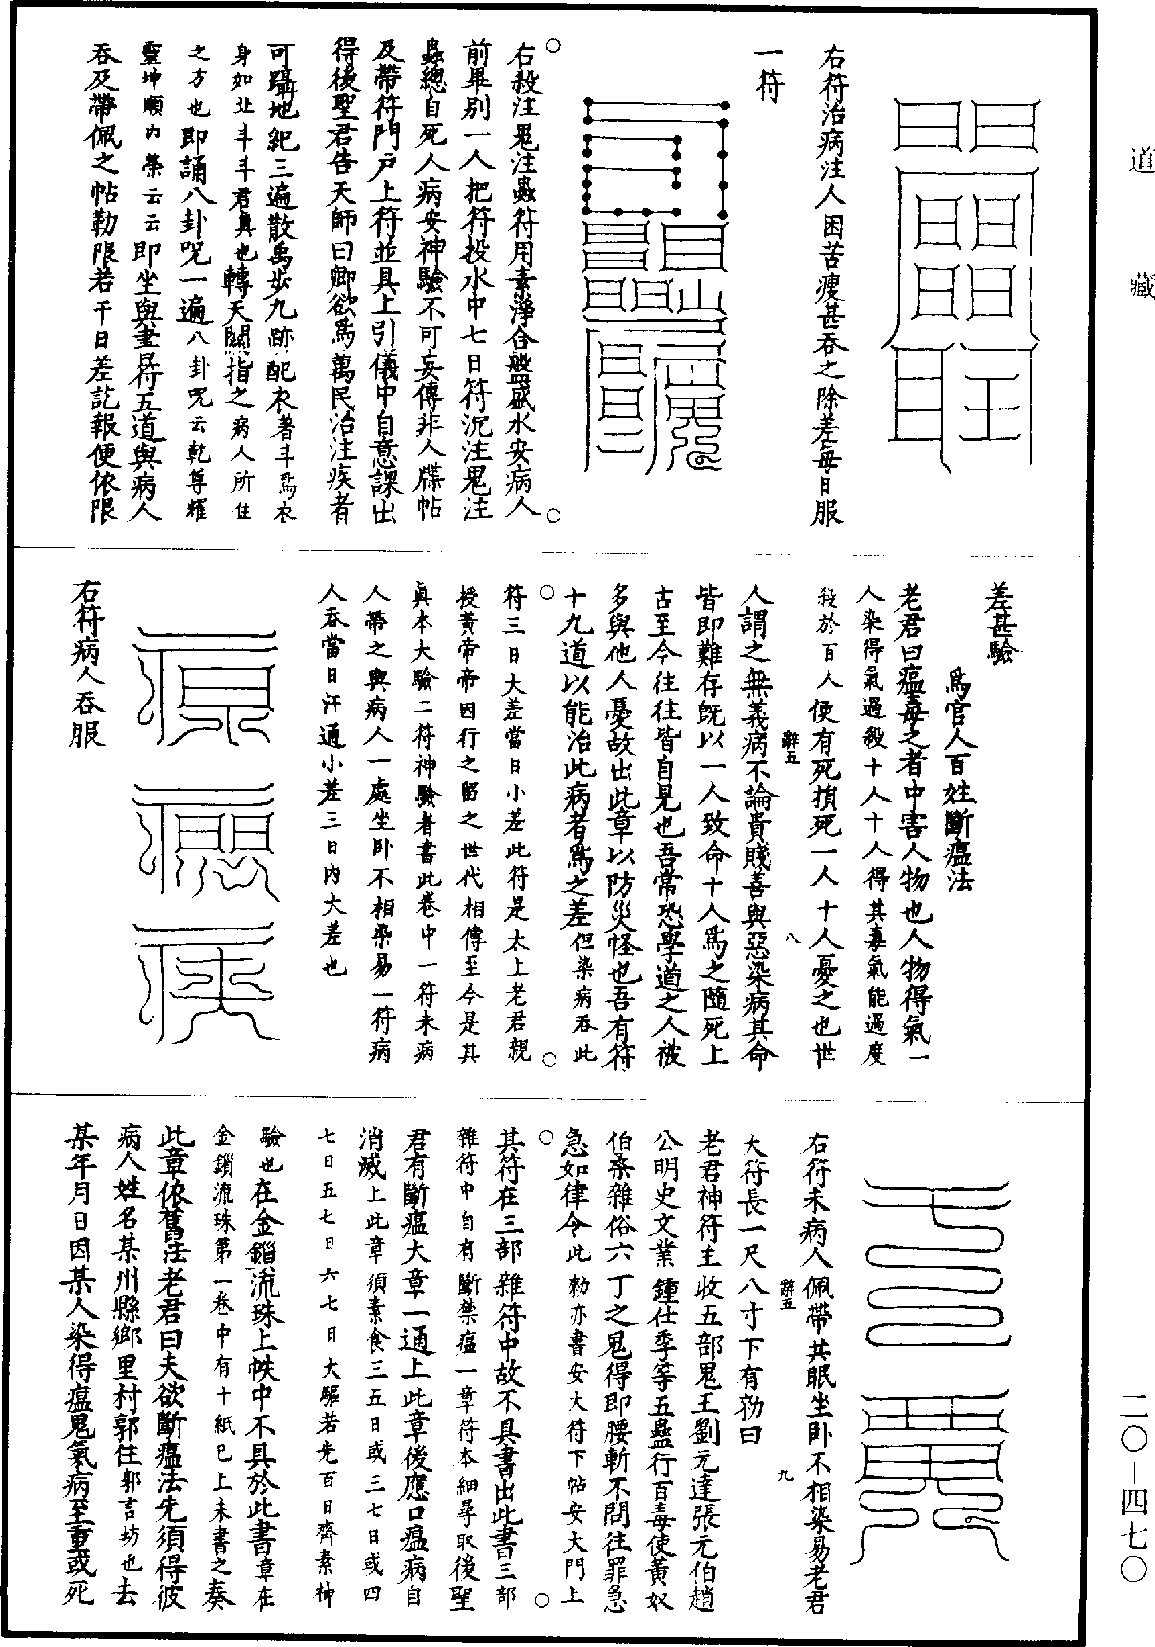 道藏
右符治病注人困苦瘦甚吞之除差每日服
一符
右殺注鬼注蟲符用素淨合盤盛水安病人
前畢別一人把符投水中七日符沉注鬼注
蟲總自死人病安神驗不可妄傳非人牒帖
及帶符門戶上符並具上引儀中自意課出
得後聖君告天師曰卿欲為萬民治注疾者
可躡地紀三遍散禹步九跡配衣著斗為衣
身如北斗斗君真也轉天關指之病人所住
之方也即誦八卦呪一遍八卦呪云乾尊耀
靈坤順內榮云云即坐與畫符五道與病人
吞及帶佩之帖勒限若干日差訖報便依限
差甚驗
為官人百姓斷瘟法
老君曰瘟毒之者中害人物也人物得氣一
人染得氣過殺十人十人得其毒氣能過度
殺於百人便有死損死一人十人憂之也世
辭五
八
人謂之無義病不論貴賤善與惡染病其命
皆即難存既以一人致命十人為之隨死上
古至今往往皆自見也吾常恐學道之人被
多與他人憂故出此章以防災怪也吾有符
十九道以能治此病者為之差但染病吞此
符三日大差當日小差此符是太上老君親
授黃帝帝因行之留之世代相傳至今是其
真本大驗二符神驗者書此卷中一符未病
人帶之與病人一處坐卧不相染易一符病
人吞當日汗通小差三日內大差也
右符病人吞服
右符未病人佩帶共眠坐卧不相染易老君
大符長一尺八寸下有勑曰
辭五
九
老君神符主收五部鬼王劉元達張元伯趙
公明史文業鍾仕季等五蠱行百毒使黃奴
伯桼雜俗六丁之鬼得即腰斬不問往罪急
急如律令此勑亦書安大符下帖安大門上
其符在三部雜符中故不具書出此書三部
雜符中自有斷禁瘟一章符本細尋取後聖
君有斷瘟大章一通上此章後應口瘟病自
消滅上此章須素食三五日或三七日或四
七日五七日六七日大驗若先百日齊素神
驗也在金鎖流珠上帙中不具於此書章在
金鎖流珠第一卷中有十紙已上未書之奏
此章依舊法老君曰夫欲斷瘟法先須得彼
病人姓名某州縣鄉里村郭住郭言坊也去
某年月日因某人染得瘟鬼氣病至重或死
二〇—四七〇